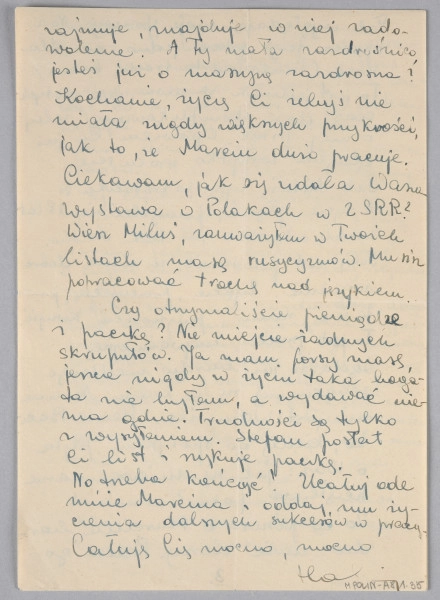 zajmuje, znajduje w niej zado-
wolenie. A Ty mała zazdrośnico
jesteś już o maszynę zazdrosna?
Kochanie, życzę Ci żebyś nie
miała nigdy większych przykrości,
jak to, że Marcin dużo pracuje.
Ciekawam, jak się udała Wasza
wystawa o Polakach w ZSRR?
Wiesz Miluś, zauważyłam w Twoich
listach masę rusycyzmów. Musisz
popracować trochę nad językiem.
Czy otrzymaliście pieniądze
i paczkę? Nie miejcie żadnych
skrupułów. Ja mam forsy masę,
jeszcze nigdy w życiu taka boga-
ta nie byłam, a wydawać nie-
ma gdzie. Trudności są tylko
z wysyłaniem. Stefan posłał
Ci list i szykuje paczkę.
No trzeba kończyć! Ucałuj ode
mnie Marcina i oddaj mu ży-
czenia dalszych sukcesów w pracy.
Całuję Cię mocno, mocno
Ha
MPOLIN-A8/1.35